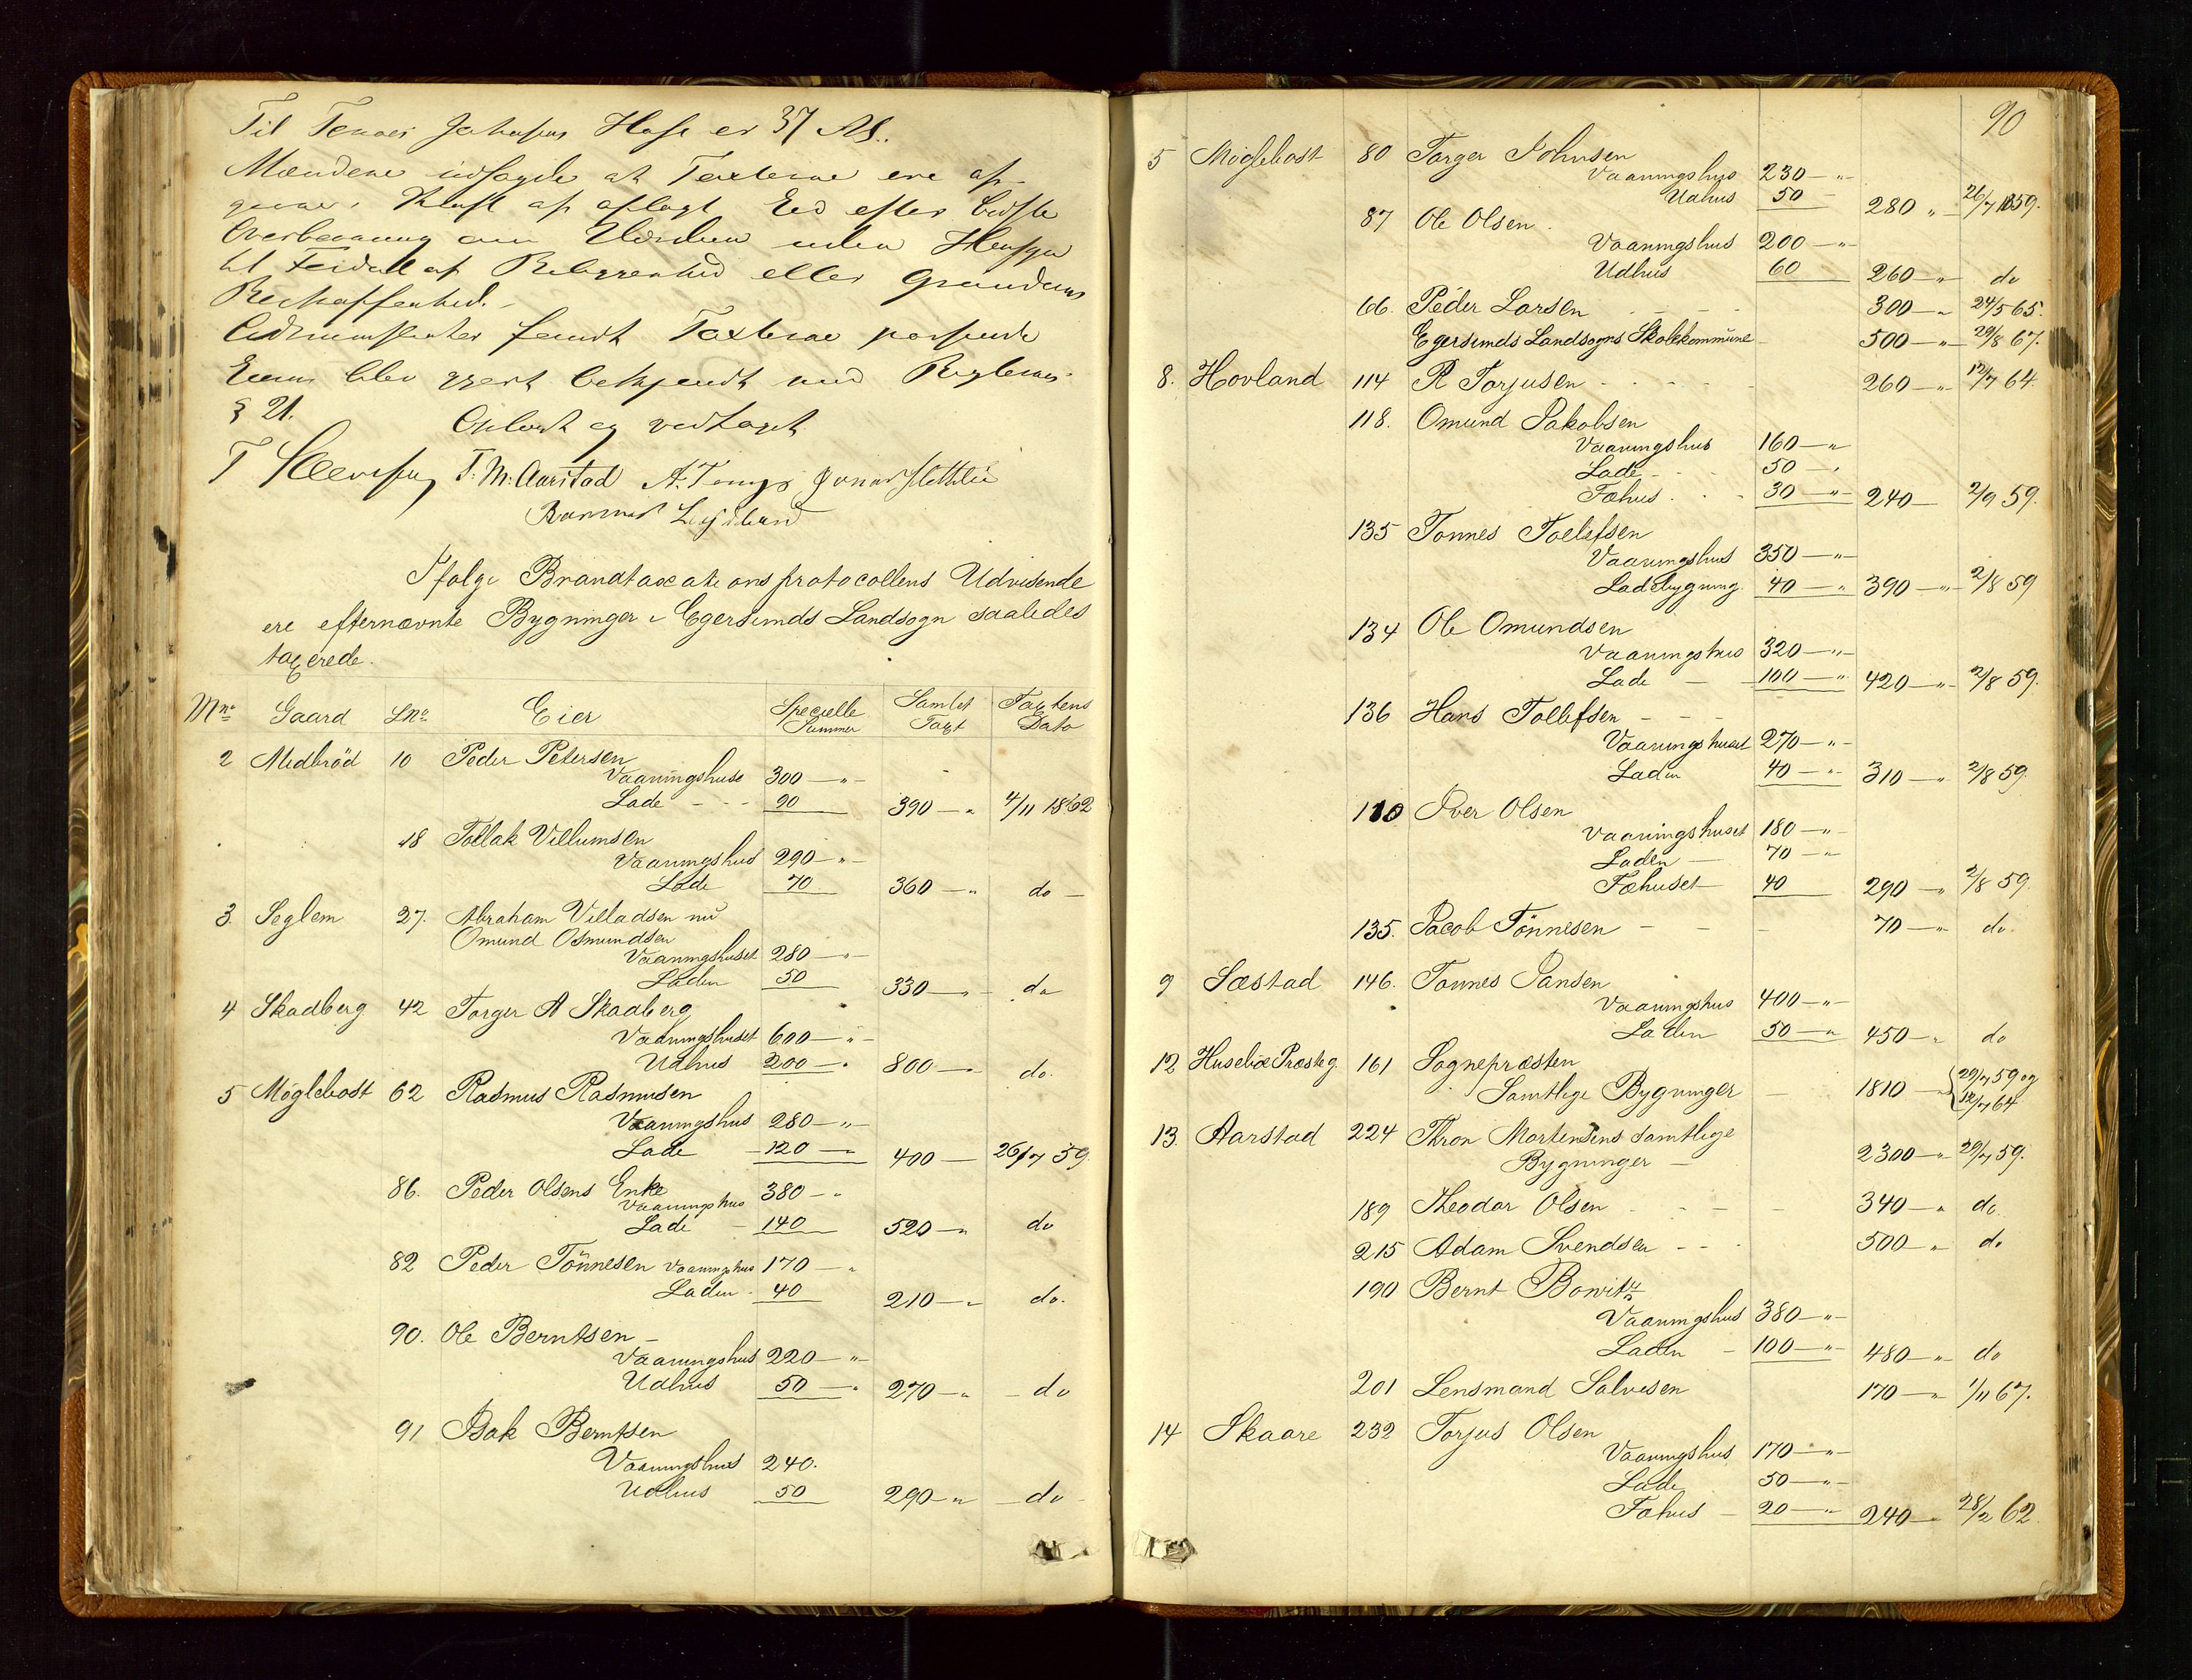 Til Jakobsens Huse er 37 Al.
Mændene udsagde at Taxterne ere af-
givne i Kraft af aflagt Eed efter bedste
Overbeviisning om Værdien uden Hensyn
til af Beliggenhed eller Grundens
Beskaffenhed.-
fandt Taxterne passende
Eierne blev gjort bekjendt med Reglernes
§ 21. Oplæst og vedtaget
T. M. Aarstad A. Tengs Jonas Slettelie
Rasmus
Ifølge Brandtaxationsprotocollens Udvisende
ere efternævnte Bygninger i Egersunds Landsogn saaledes
taxerede.
Mno Gaard Lno Eier Specielle Summer Samlet Taxt Taxtens Dato
2 Midbröd 10 Peder Petersen
Vaaningshuse 300 - "
Lade - - - 90 390 - " 4/11 1862
18 Tollak Villumsen
Vaaningshus 290 - "
Lade 70 360 - " do -
3. Seglem 27. Abraham Villadsen nu
Omund Osmundsen
Vaaningshuset 280 - "
Laden 50 330 - " do
4 Skadberg 42 Torger A Skadberg
Vaaningshuset 600 - "
Udhus 200 - " 800 - " do.
5 Möglebost 62 Rasmus Rasmusen
Vaaningshus 280 - "
Lade - 120 - 400 - 26/7 59.
86. Peder Olsens Enke 380 - "
Vaaningshus
Lade - 140 520 - " do
82 Peder Tönnesen Vaaningshus 170 - "
Laden - 40 210 - " do.
90. Ole Berntsen -
Vaaningshus 220 - "
Udhus 50 - " 270 - " - do
91 Isak Berntsen
Vaaningshus 240.
Udhus 50 290 - " - do -
90
5 Möglebost 80 Torger Johnsen
Vaaningshus 230 - "
Udhus 50 280 " - 26/7 1859.
87 Ole Olsen.
Vaaningshus 200 - "
Udhus 60 260 - " do
66. Peder Larsen - - - 300 - " 24/5 65.
Egersunds Landsogns Skolekommune - 500 - " - 29/8 67.
8. Hovland 114 R Torjusen - - - 260 - " 12/7 64.
118. Omund Jakobsen
Vaaningshus 160 - "
Lade - 50 - "
Fæhus. 30 - " 240 - 2/9 59.
135 Tonnes Toelefsen
Vaaningshus 350 - "
Ladebygning. 40 - " 390 - " 2/8 59
134 Ole Omundsen
Vaaningshus 320 - "
Lade - 100 - " 420 - " 2/8 59.
136 Hans Tollefsen - - -
Vaaningshuset 270 - "
Laden 40 - " 310 - " 2/8 59.
110 Iver Olsen
Vaaningshuset 180 - "
Laden - 70 - "
Fæhuset - 40 290 - " 2/8 59
135. Jacob Tönnesen - - - 70 - " do.
9 Sæstad 146. Tonnes Jansen
Vaaningshus 400 - "
Laden 50 - " 450 - " do
12 Husebiø Præsteg. 161 Sognepræsten
Samtlige Bygninger - 1810 - " { 29/7 59 og
12/7 64
13. Aarstad 224 Thron Mortensens samtlige
Bygninger - 2300 - " 29/7 59.
189 Theodor Olsen - - - 340 - " do.
215 Adam Svendsen - - 500 - " do
190 Bernt Bowitz
Vaaningshus 380 - "
Laden - 100 - " 480 - " do
201 Lensmand Salvesen 170 - " 1/11 67.
14 Skaare 232 Torjus Olsen
Vaaningshus 170 - "
Lade 50 - "
Fæhus - 20 - " 240 - 28/2 62.